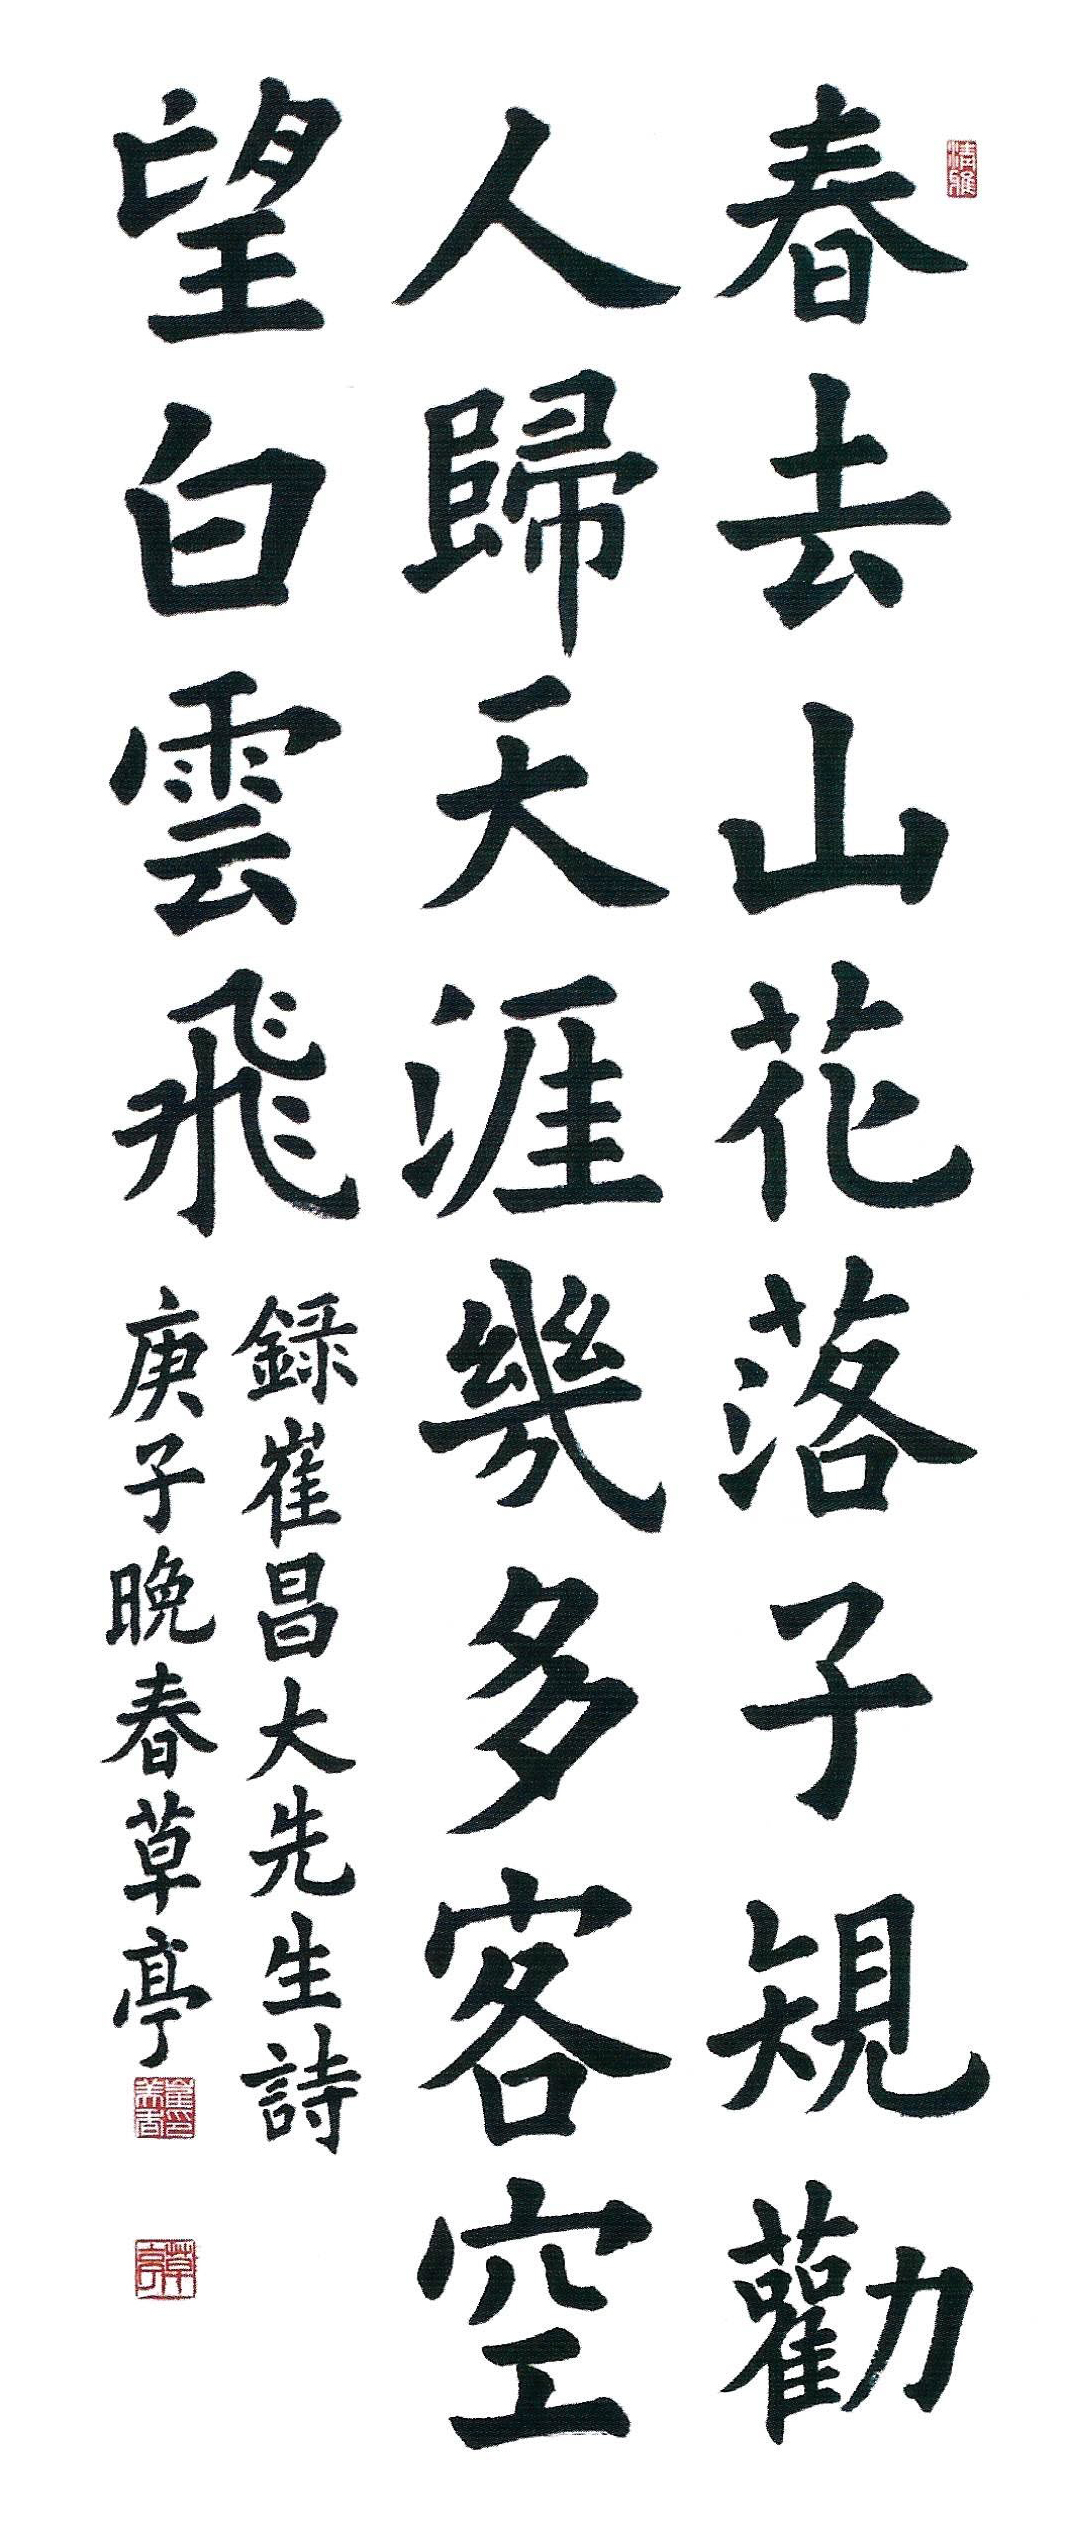 春去山花落子規勸
人歸天涯幾多客空
望白雲飛
錄崔昌大先生詩
庚子晚春草亭